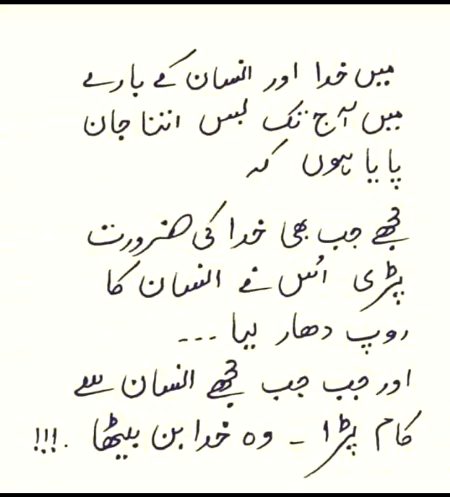 میں خدا اور انسان کے بارے
میں آج تک بس اتنا جان
پایا ہوں کہ
مجھے جب بھی خدا کی ضرورت
پڑی اُس نے انسان کا
روپ دھار لیا ---
اور جب جب مجھے انسان سے
کام پڑا - وہ خدا بن بیٹھا .!!!